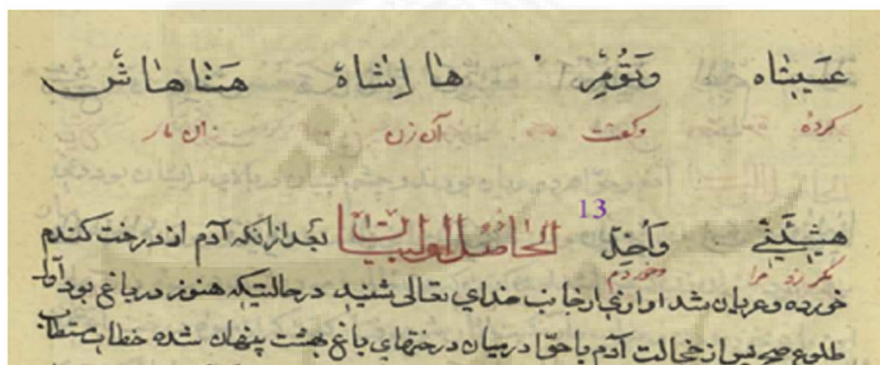 عَسیِتاه وَیَوُمِر ها اِنشاهْ هَنناهاش
کردهٔ وکفت آن زن آن مار
هیشِئَنی وَاُخِل 13 الحاصل اولیات بعد از انکه آدم از درخت کندم
مکر زد مرا وخوردم
خورده و عریان شد اواز جانب خدای تعالی شنید در حالتیکه هنوز در باغ بود
طلوع صبح پس از خجالت آدم با حوّا در میان درختهای باغ بهشت پنهان شده خطاب مستطاب